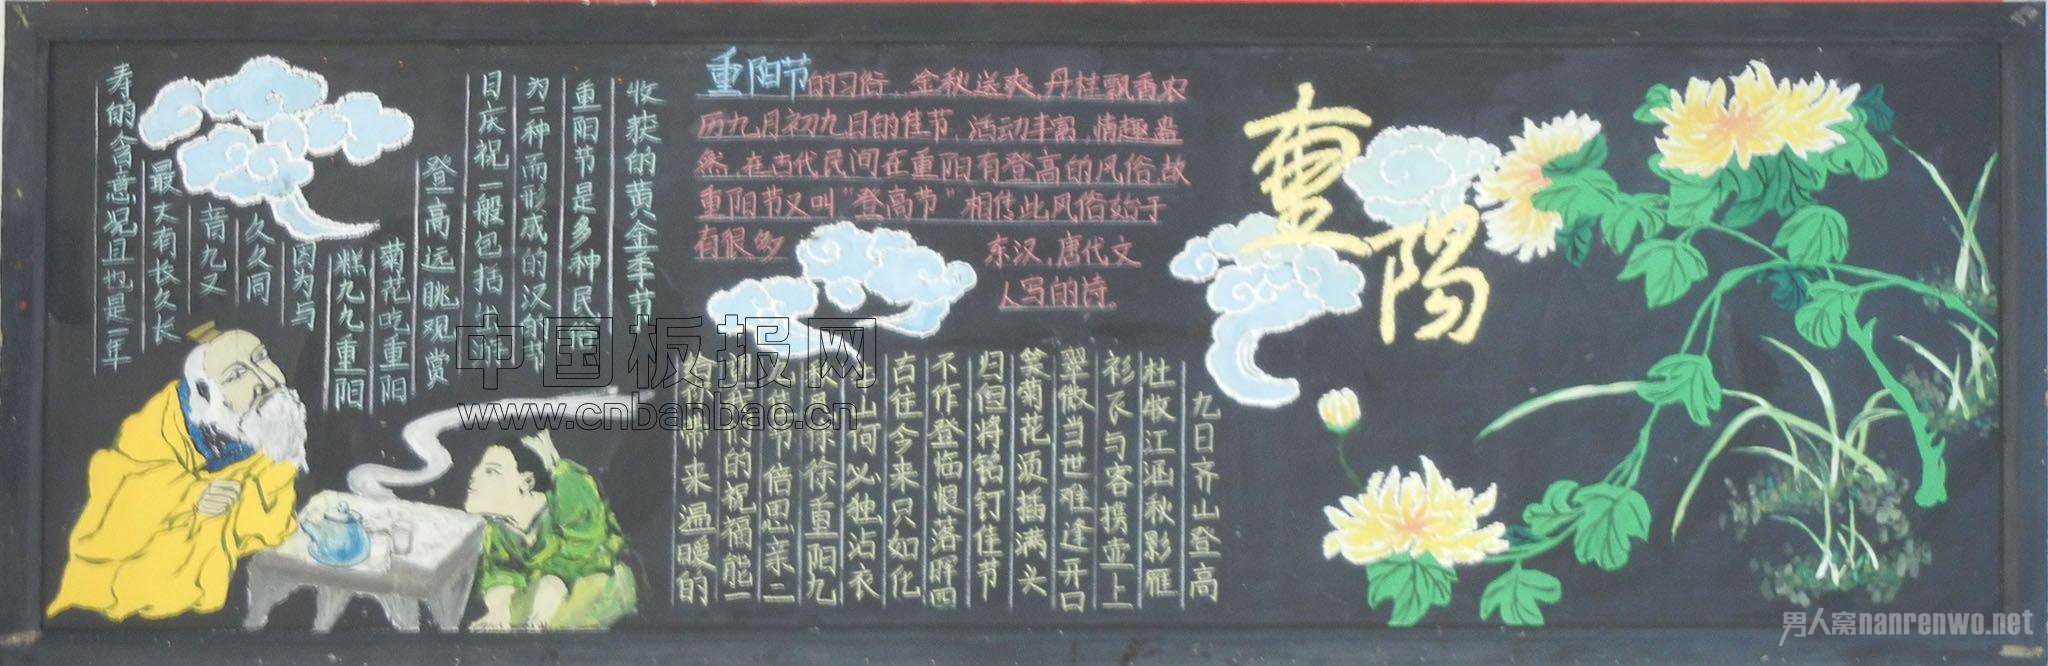 重阳
重阳节的习俗，金秋送爽，丹桂飘香农
历九月初九日的佳节，活动丰富，情趣盎
然，在古代民间在重阳有登高的风俗故
重阳节又叫“登高节”相传此风俗始于
有很多 东汉，唐代文
人写的诗.
收获的黄金季节
重阳节是多种民俗
为一种而形成的汉的
日庆祝一般包括出
登高远眺观赏
菊花吃重阳
糕九九重阳
因为与
久久同
音九又
最大有长久长
寿的含意况且也是一年
九日齐山登高
杜牧江涵秋影雁
衫衣与客携壶上
翠微当世难逢开口
笑菊花须插满头
归但将铭钉佳节
不作登临恨落晖四
古往今来只如化
山何必独沾衣
徐徐重阳九
节倍思亲二
们的祝福能一
带来温暖的
中国板报网
www.cnbanbao.cn
男人窝nanrenwo.net